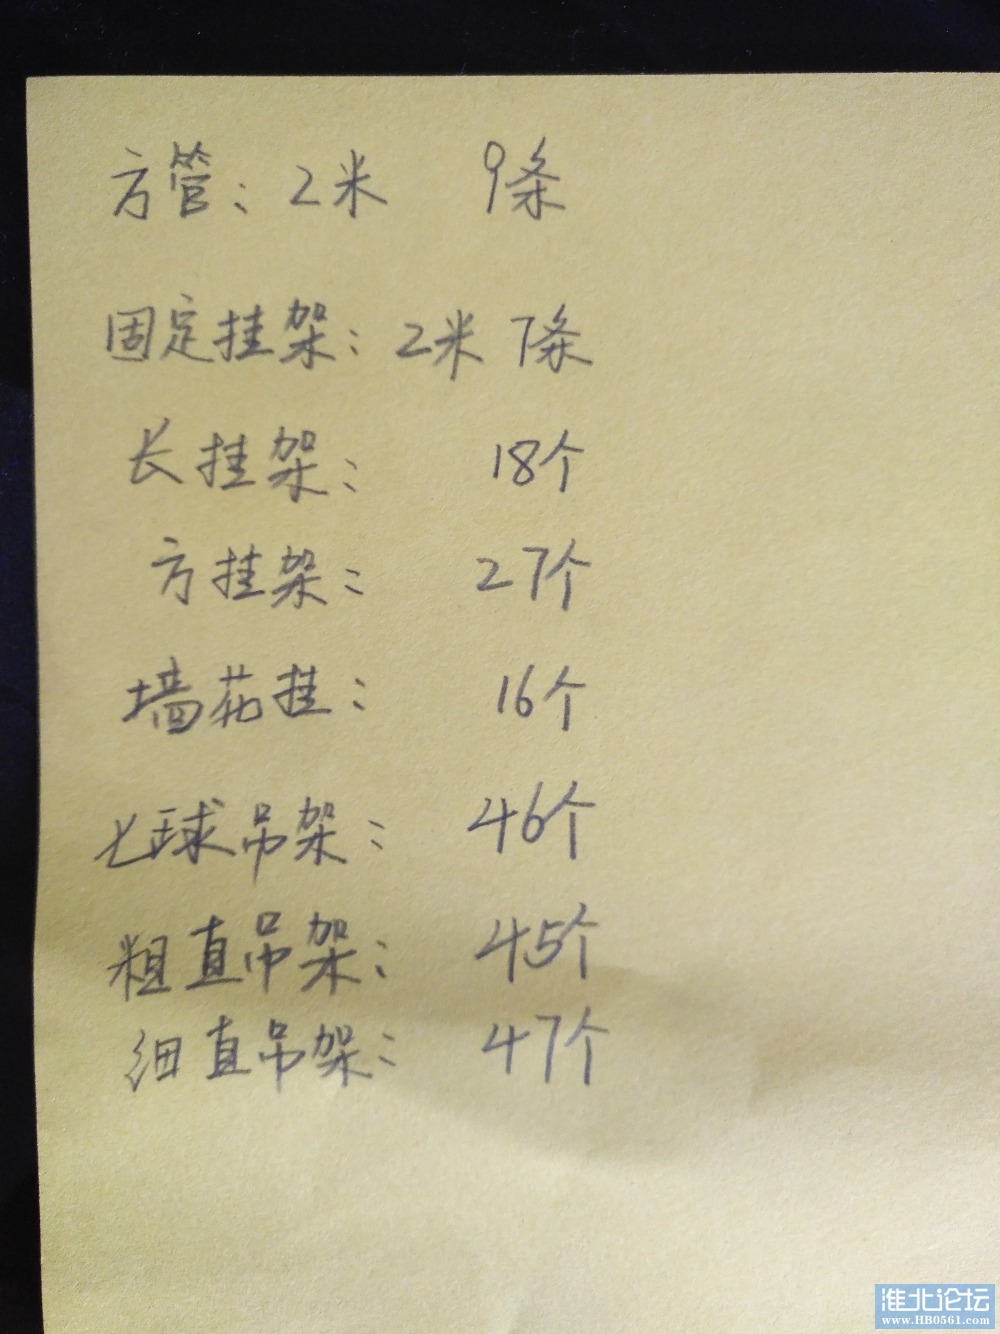 方管：2米 9条
固定挂架：2米 7条
长挂架： 18个
方挂架： 27个
墙花挂： 16个
七球吊架： 46个
粗直吊架： 45个
细直吊架： 47个
淮北论坛
www.HB0561.com